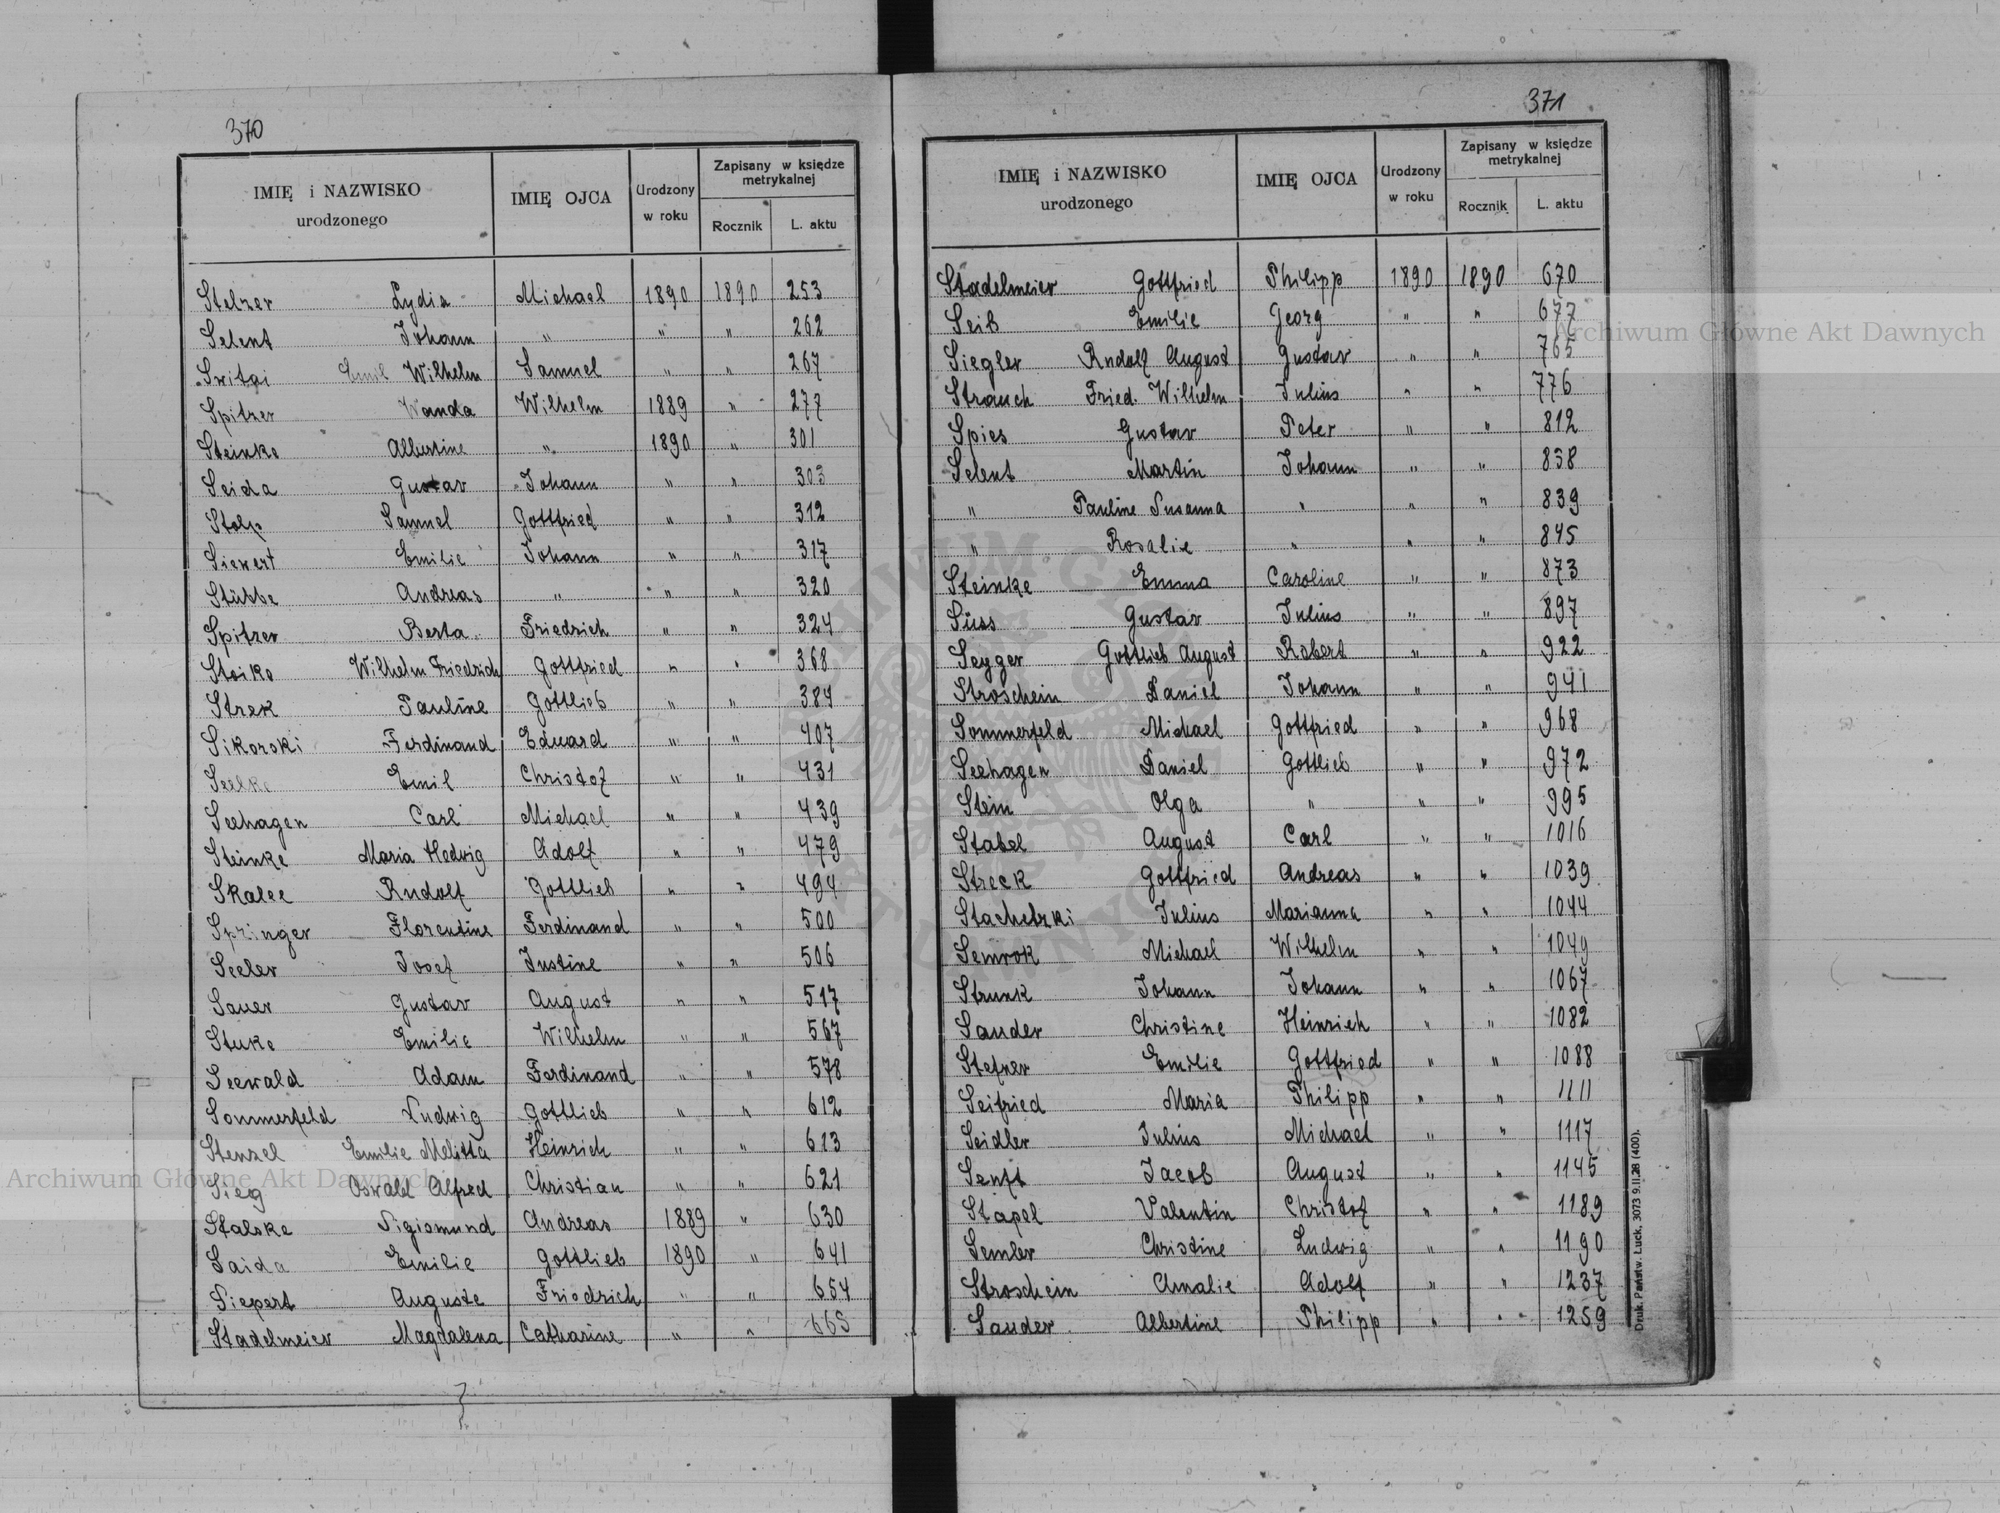 370
IMIĘ i NAZWISKO urodzonego | IMIĘ OJCA | Urodzony w roku | Zapisany w księdze metrykalnej
Rocznik | L. aktu
Stelzer Lydia Michael 1890 1890 253
Selent Johann " " " 262
Switai Emil Wilhelm Samuel " " 267
Spitzer Wanda Wilhelm 1889 " 277
Steinke Albertine " 1890 " 301
Seida Gustav Johann " " 303
Stolp Samuel Gottfried " " 312
Siewert Emilie Johann " " 317
Stübbe Andreas " " " 320
Spitzer Berta Friedrich " " 324
Steike Wilhelm Friedrich Gottfried " " 368
Strek Pauline Gottlieb " " 384
Sikorski Ferdinand Eduard " " 407
Seelke Emil Christof " " 431
Seehagen Carl Michael " " 439
Steinke Maria Hedwig Adolf " " 479
Skalee Rudolf Gottlieb " " 494
Springer Florentine Ferdinand " " 500
Seeler Josef Justine " " 506
Sauer Gustav August " " 517
Stuke Emilie Wilhelm " " 567
Seewald Adam Ferdinand " " 578
Sommerfeld Ludwig Gottlieb " " 612
Stenzel Emilie Melitta Heinrich " " 613
Sieg Oswald Alfred Christian " " 621
Stalske Sigismund Andreas 1889 " 630
Saida Emilie Gottlieb 1890 " 641
Siepert Auguste Friedrich " " 654
Stadelmeier Magdalena Catharine " "
371
IMIĘ i NAZWISKO urodzonego | IMIĘ OJCA | Urodzony w roku | Zapisany w księdze metrykalnej
Rocznik | L. aktu
Stadelmeier Gottfried Philipp 1890 1890 670
Seib Emilie Georg " " 677
Siegler Rudolf August Gustav " " 765
Strauch Fried. Wilhelm Julius " " 776
Spies Gustav Peter " " 812
Selent Martin Johann " " 838
" Pauline Susanna " " " 839
" Rosalie " " " 845
Steinke Emma Caroline " " 873
Süss Gustav Julius " " 897
Seyger Gottlieb August Robert " " 922
Stroschein Daniel Johann " " 941
Sommerfeld Michael Gottfried " " 968
Seehagen Daniel Gottlieb " " 972
Stein Olga " " " 995
Stabel August Carl " " 1016
Streck Gottfried Andreas " " 1039
Stachetzki Julius Marianna " " 1044
Semrok Michael Wilhelm " " 1049
Strunk Johann Johann " " 1067
Sauder Christine Heinrich " " 1082
Stefner Emilie Gottfried " " 1088
Seifried Maria Philipp " " 1111
Seidler Julius Michael " " 1117
Senft Jacob August " " 1145
Stapel Valentin Christof " " 1189
Semler Christine Ludwig " " 1190
Stroschein Amalie Adolf " " 1237
Sauder Albertine Philipp " " 1259
Druk. Państw. Łuck, 3073 9.II.28 (400).
Archiwum Główne Akt Dawnych
Archiwum Główne Akt Dawnych